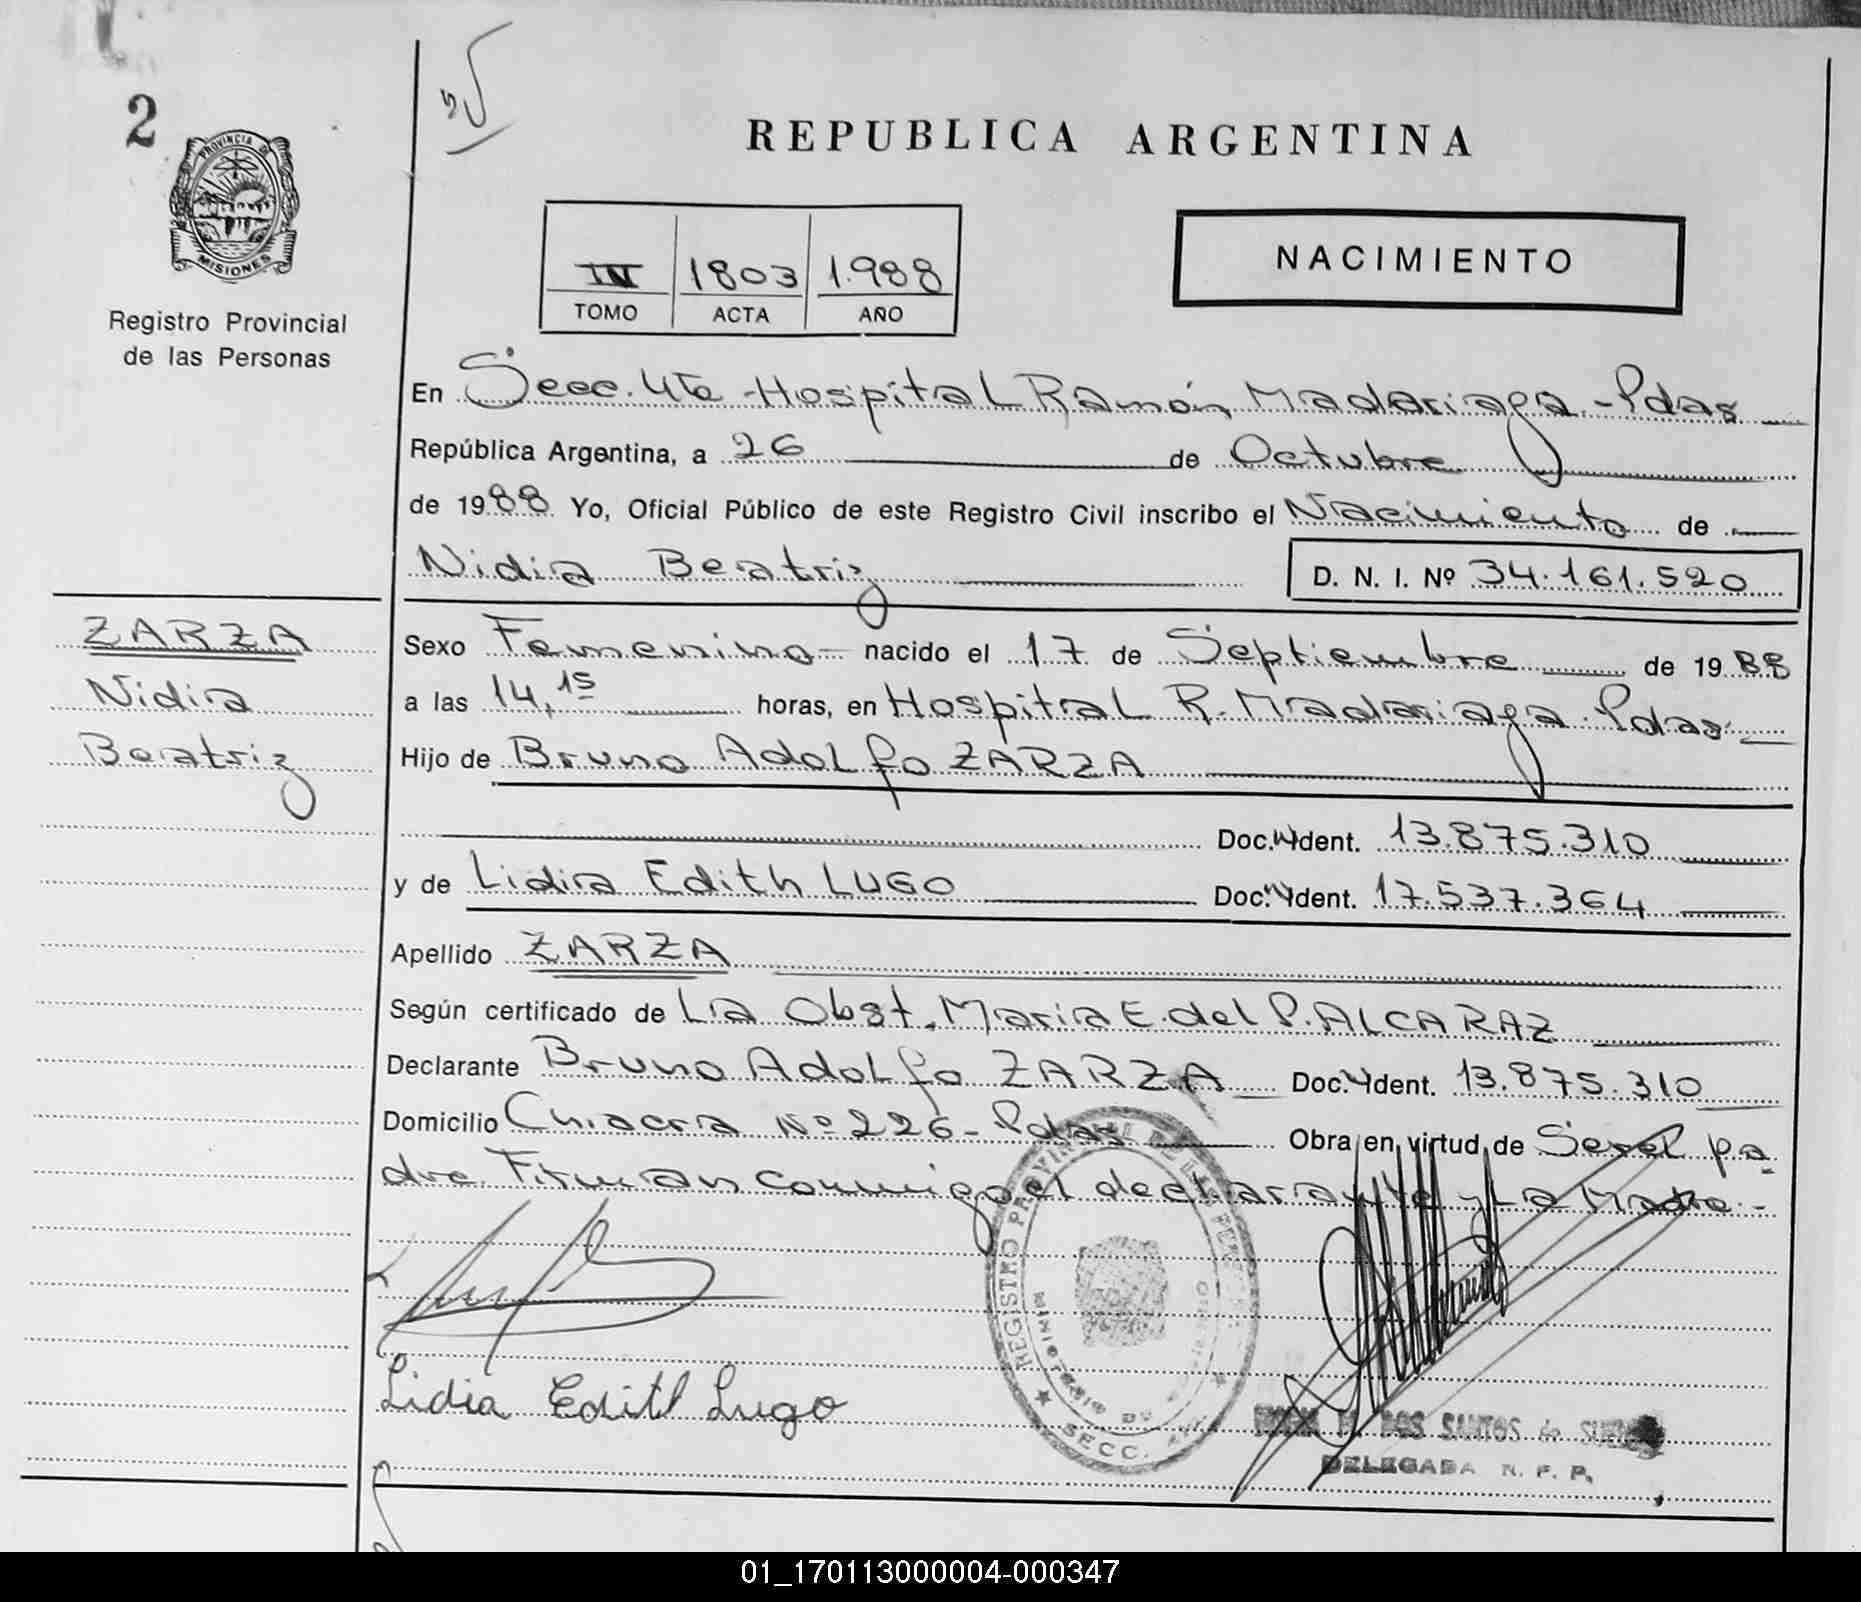 2
PROVINCIA DE
MISIONES
Registro Provincial
de las Personas
REPUBLICA ARGENTINA
IV 1803 1.988
TOMO ACTA AÑO
NACIMIENTO
En Secc. 4ta - Hospital Ramón Madariaga - Pdas
República Argentina, a 26 de Octubre
de 1988 Yo, Oficial Público de este Registro Civil inscribo el Nacimiento de
Nidia Beatriz D. N. I. Nº 34.161.520
ZARZA
Nidia
Beatriz
Sexo Femenino nacido el 17 de Septiembre de 1988
a las 14,15 horas, en Hospital R. Madariaga. Pdas
Hijo de Bruno Adolfo ZARZA
Doc. Ident. 13.875.310
y de Lidia Edith LUGO Doc. Ident. 17.537.364
Apellido ZARZA
Según certificado de La Obst. Maria E. del P. ALCARAZ
Declarante Bruno Adolfo ZARZA Doc. Ident. 13.875.310
Domicilio Chacra Nº 226 - Pdas Obra en virtud de Ser el pa
dre. Firman conmigo el declarante y La Madre.-
REGISTRO PROVINCIAL DE LAS
MINISTERIO DE
SECC.
Lidia Edith Lugo
DOS SANTOS de
DELEGADA R. P. P.
01_170113000004-000347